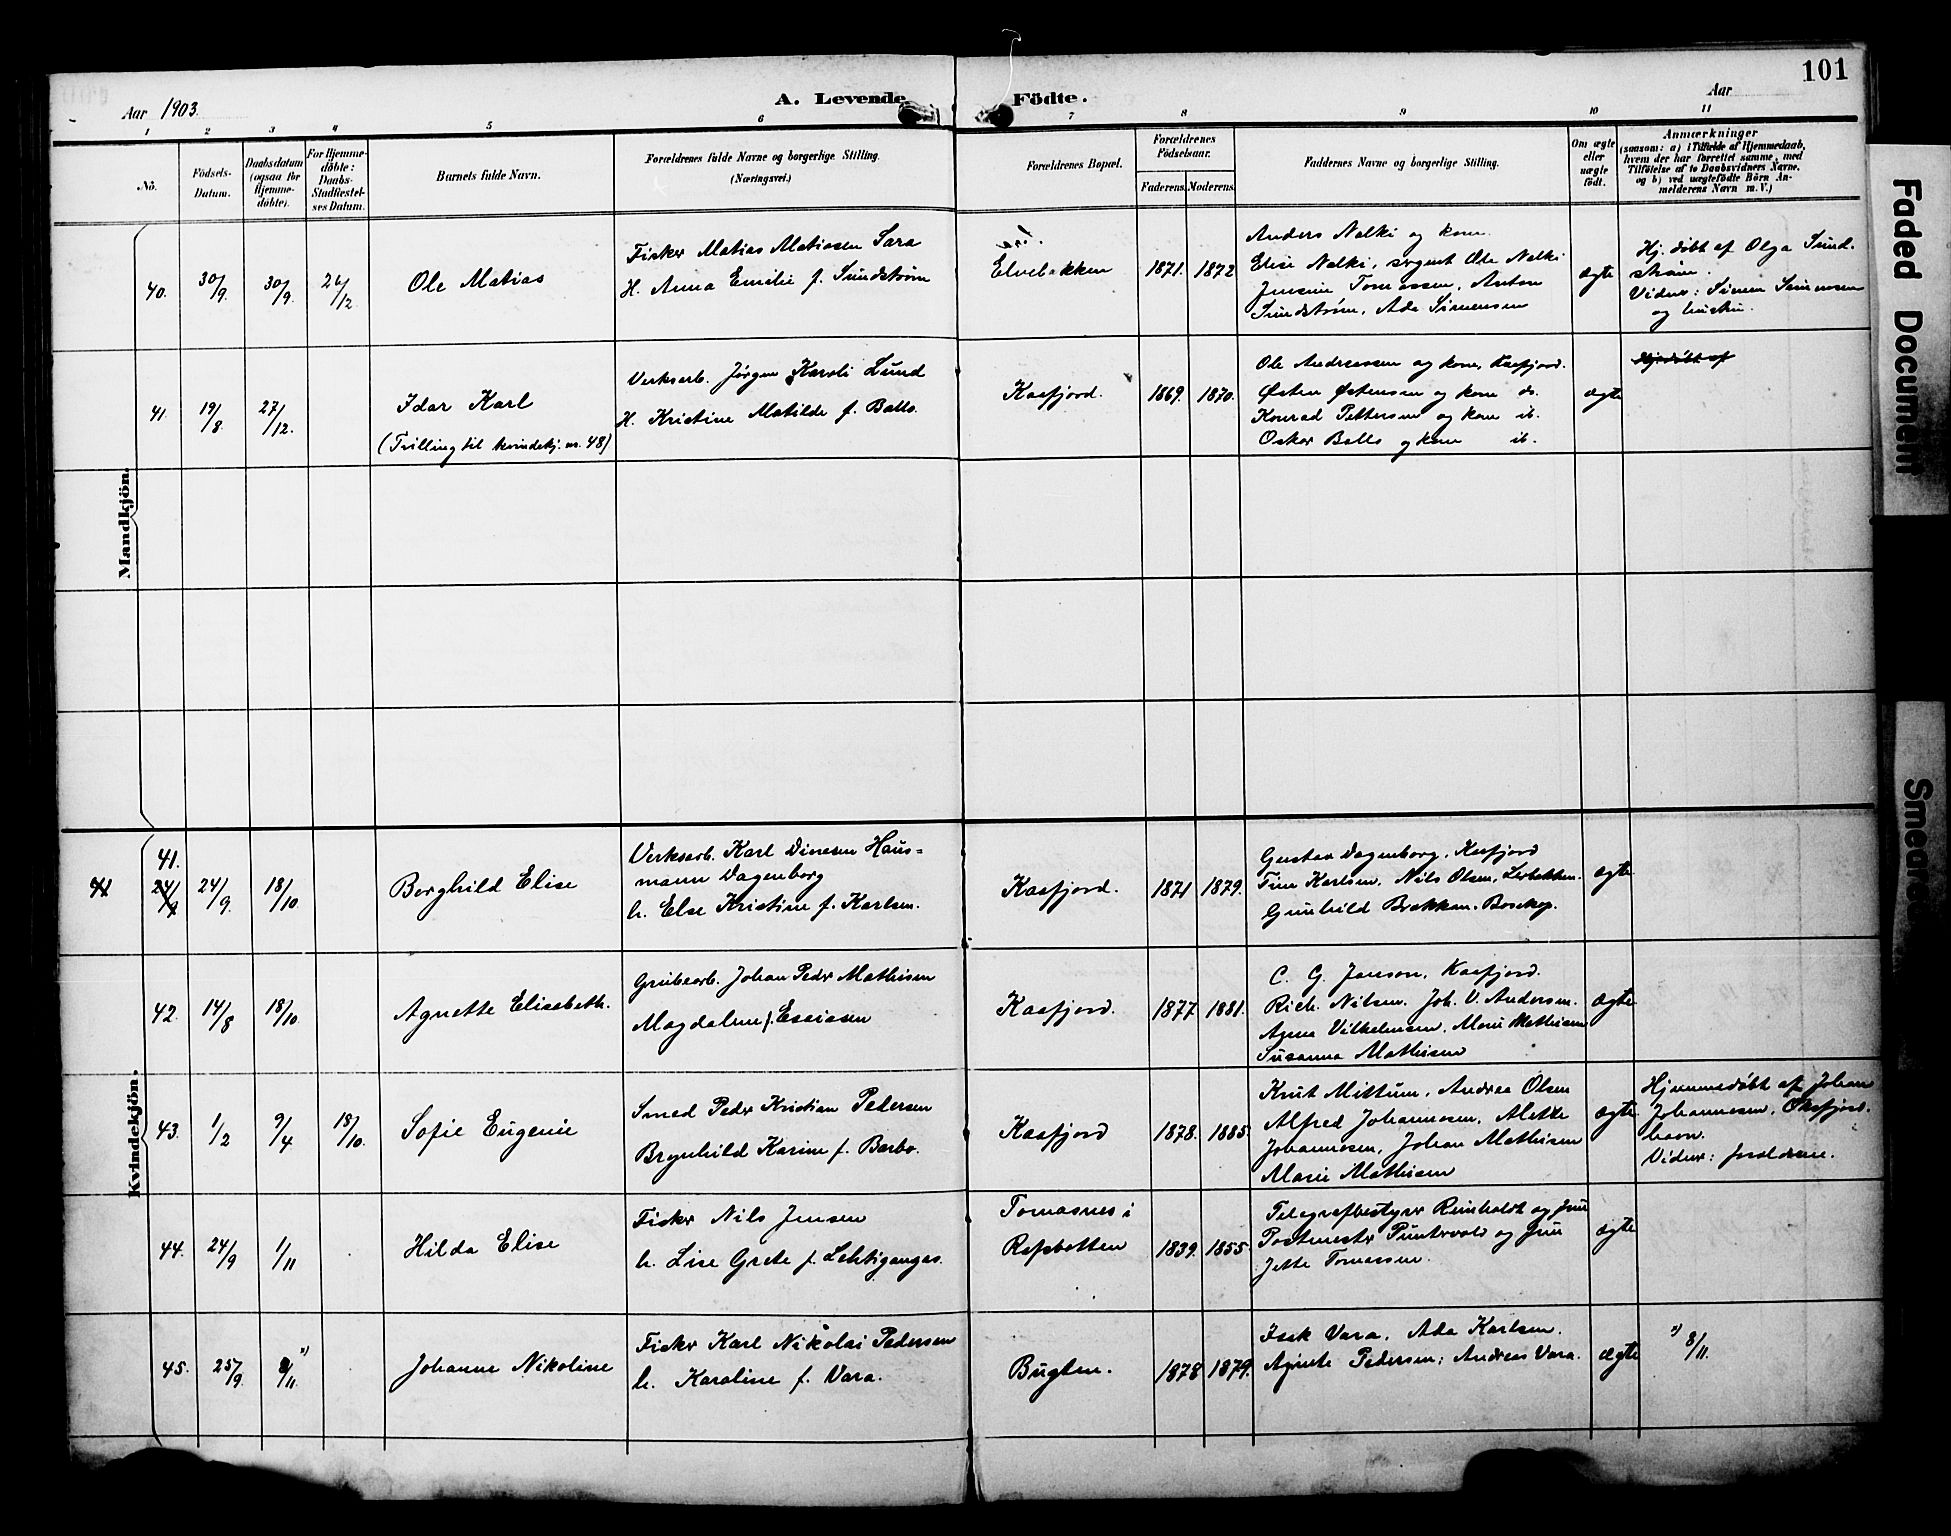 101
Aar 1903.
A. Levende Födte.
Aar
1 2 3 4 5 6 7 8 9 10 11
No.
Födsels-
Datum.
Daabsdatum
(ogsaa for
Hjemme-
døbte).
For Hjemme-
døbte:
Daabs-
Stadfæstel-
ses Datum.
Barnets fulde Navn.
Forældrenes fulde Navne og borgerlige Stilling.
(Næringsvei.)
Forældrenes Bopæl.
Forældrenes
Födselsaar.
Faderens. Moderens.
Faddernes Navne og borgerlige Stilling.
Om ægte
eller
uægte
født.
Anmærkninger
(saasom: a) i Tilfælde af Hjemmedaab,
hvem der har forrettet samme, med
Tilföielse af to Daabsvidners Navne,
og b) ved uægtefödte Börn An-
melderens Navn m. V.)
Mandkjön.
40.
30/9.
30/9.
26/12.
Ole Matias
Fisker Matias Matiasen Sara
H. Anna Emilie f. Sundstrøm
Elvebakken
1871. 1872
Anders Nalki og kone.
Elise Nalki, svigent Ole Nalki
Jensine Tomassen, Anton
Sundstrøm, Ada Simensen
ægte
Hj. døbt af Olga Sund-
strøm.
Vidner: Simen Simensen
og hustru.
41.
19/8.
27/12.
Idar Karl
(Tvilling til kvindekj. nr. 48)
Verksarb. Jørgen Karoli Lund
H. Kristine Matilde f. Ballo.
Kaafjord.
1869. 1870.
Ole Andreassen og kone, Kaafjord.
Østen Østensen og kone do.
Konrad Pettersen og kone ib.
Oskar Ballo og kone ib.
ægte
Hjemdøbt af
Kvindekjön.
41
41.
24/9
24/9.
18/10.
Borghild Elise
Verksarb. Karl Dinesen Haus=
mann Dagenborg
h. Else Kristine f. Karlsen.
Kaafjord.
1871 1879.
Gustav Dagenborg, Kaafjord
Tine Karlsen, Nils Olsen,
Gunhild Brækken. Bosekop.
ægte
42.
14/8
18/10.
Agnette Elisabeth.
Grubearb. Johan Peder Mathisen
Magdalene f. Esaiasen
Kaafjord.
1877. 1881.
C. G. Janson, Kaafjord.
Rich. Nilsen. Joh. V. Andersen.
Agnes Vilhelmsen. Marie Mathisen
Susanna Mathisen
ægte
43.
1/2
9/4
18/10.
Sofie Eugenie
Smed Peder Kristian Pedersen
Brynhild Karine f. Barbo.
Kaafjord
1878. 1885.
Knut Mittun, Andrea Olsen
Alfred Johannesen, Alette
Johannesen, Johan Mathisen
Marie Mathisen
ægte.
Hjemmedøbt af Johan
Johannesen, Øksfjord-
havn.
Vidner: forældrene.
44.
24/9
1/11
Hilda Elise
Fisker Nils Jensen
h. Lise Grete f. Lehtigangas.
Tomasnes i
Rafsbotten
1839. 1855.
Telegrafbestyrer Reinholdt og frue
Postmester Puntervold og frue
Jette Tomassen.
ægte
45.
25/9.
8/11. ")
Johanne Nikoline
Fisker Karl Nikolai Pedersen
h. Karoline f. Vara.
Bugten.
1878 1879.
Isak Vara, Ada Karlsen.
Agnete Pedersen; Andreas Vara.
ægte
") 8/11.
Faded Document
Smeared